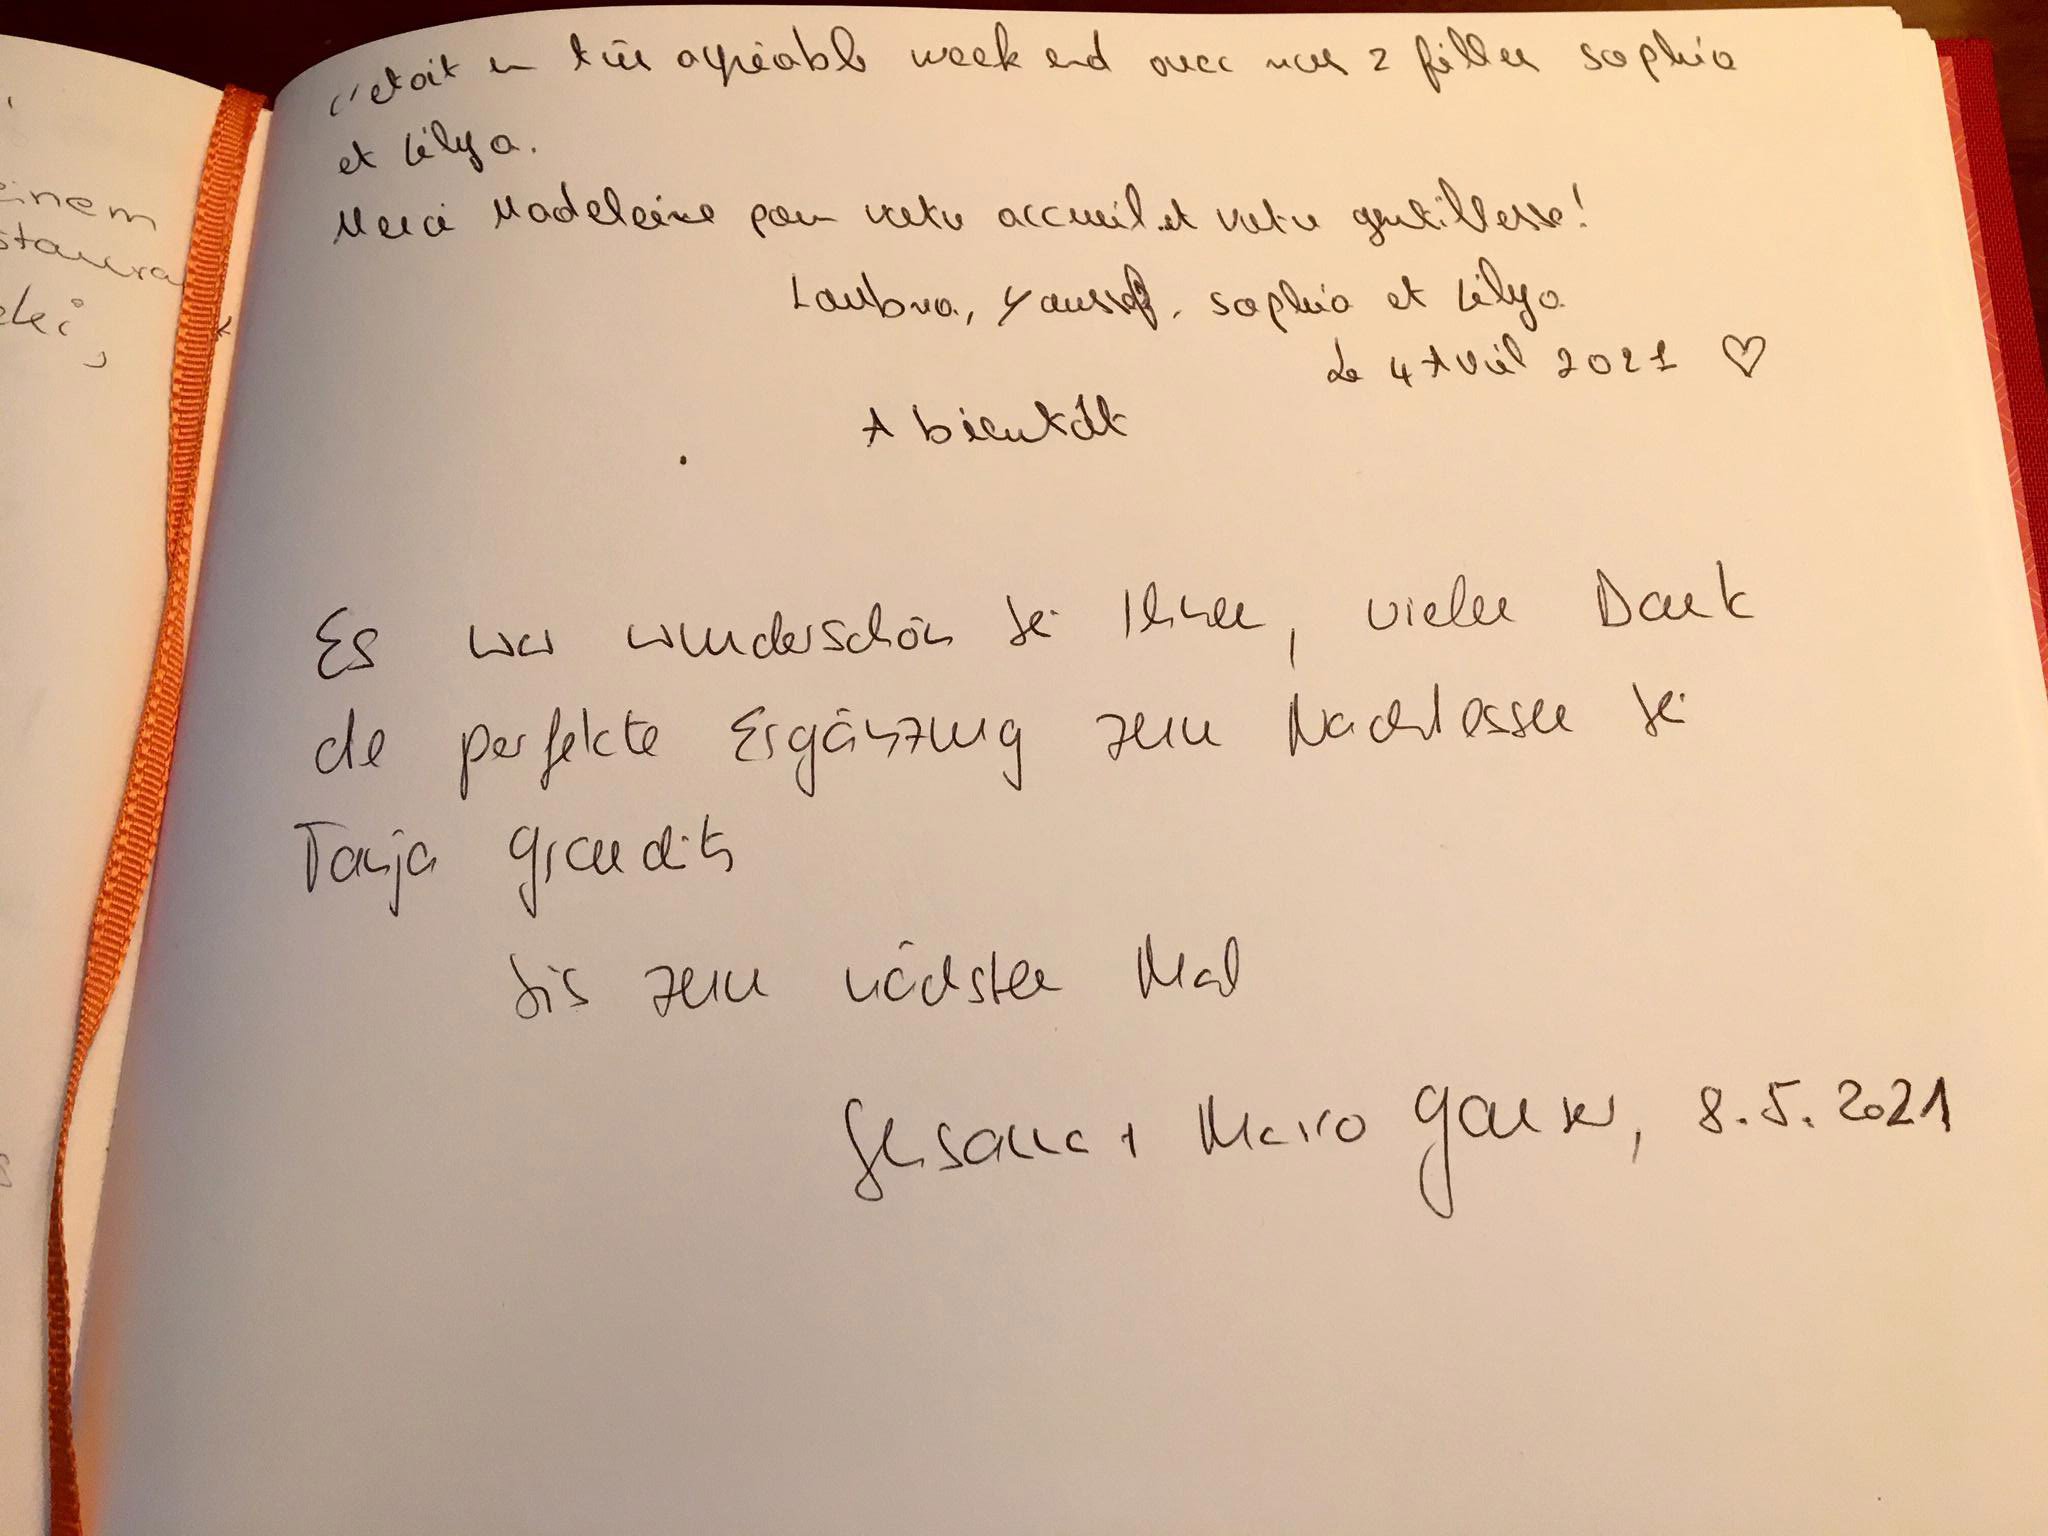 einem
staura
c'etait un très agréable week end avec nos 2 filles Sophia
et Lilya.
Merci Madeleine pour votre accueil et votre gentillesse!
Loubna, Youssef, Sophia et Lilya
Le 4 Avril 2021 ♡
A bientôt
Es war wunderschön bei Ihnen, vielen Dank
die perfekte Ergänzung zum Nachtessen bei
Tanja Grandits
bis zum nächsten Mal
+ Marco 8.5.2021